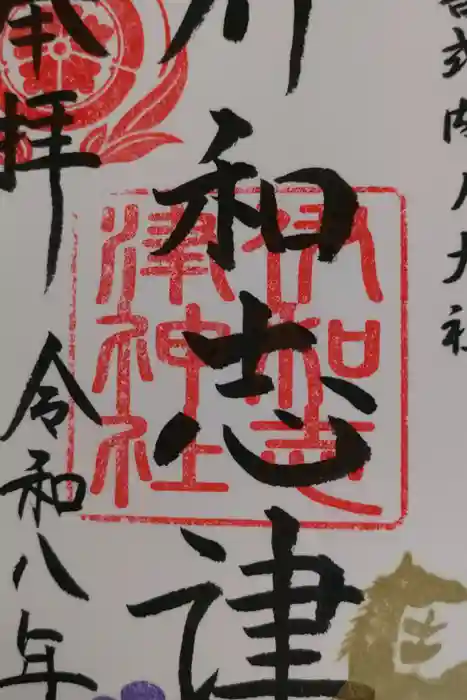 式内大社
和志津
伊和志
津神社
奉拝
令和八年